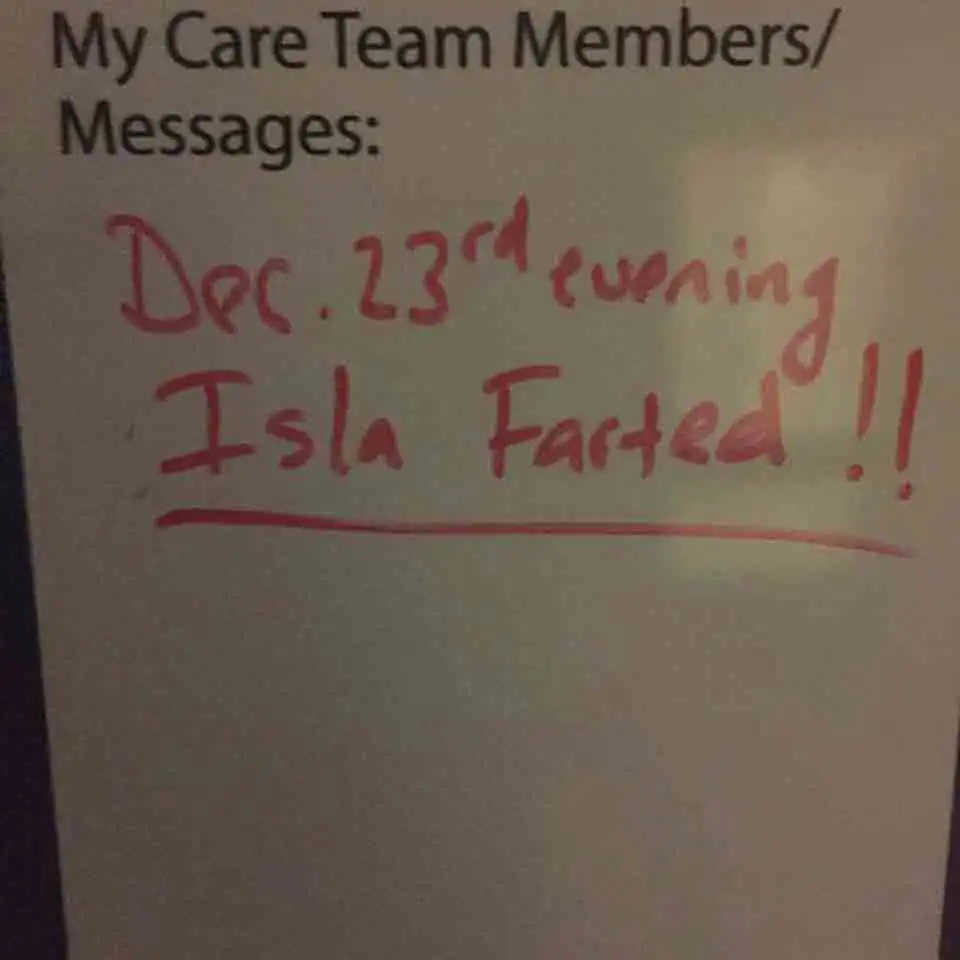 My Care Team Members/
Messages:
Dec. 23rd evening
Isla Farted!!